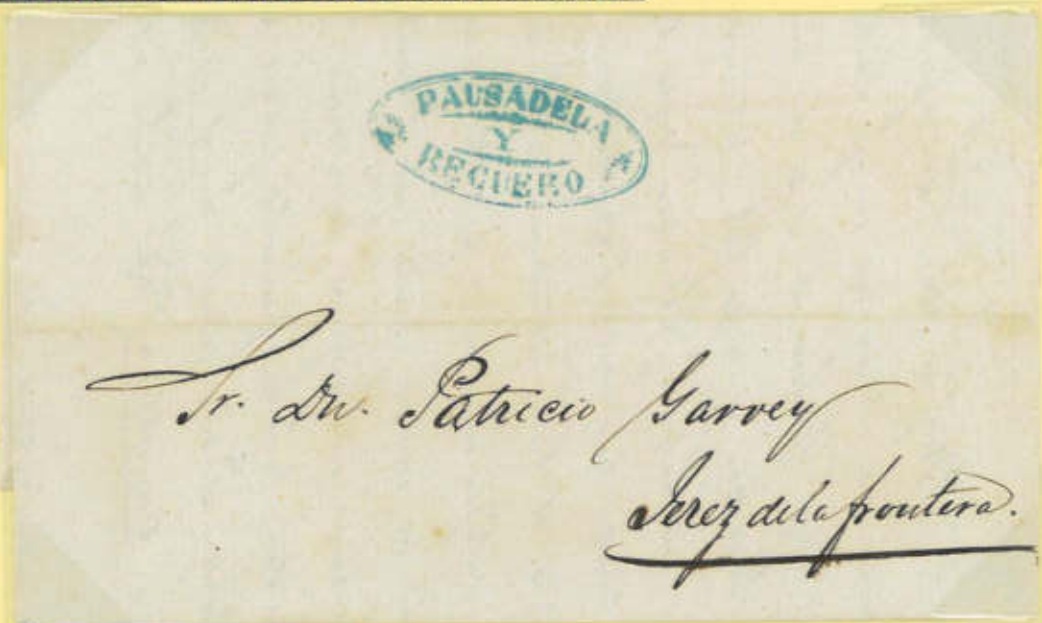 PAUSADELA
Y
RECUERO
Sr. Dn. Patricio Garvey
Jerez de la frontera.